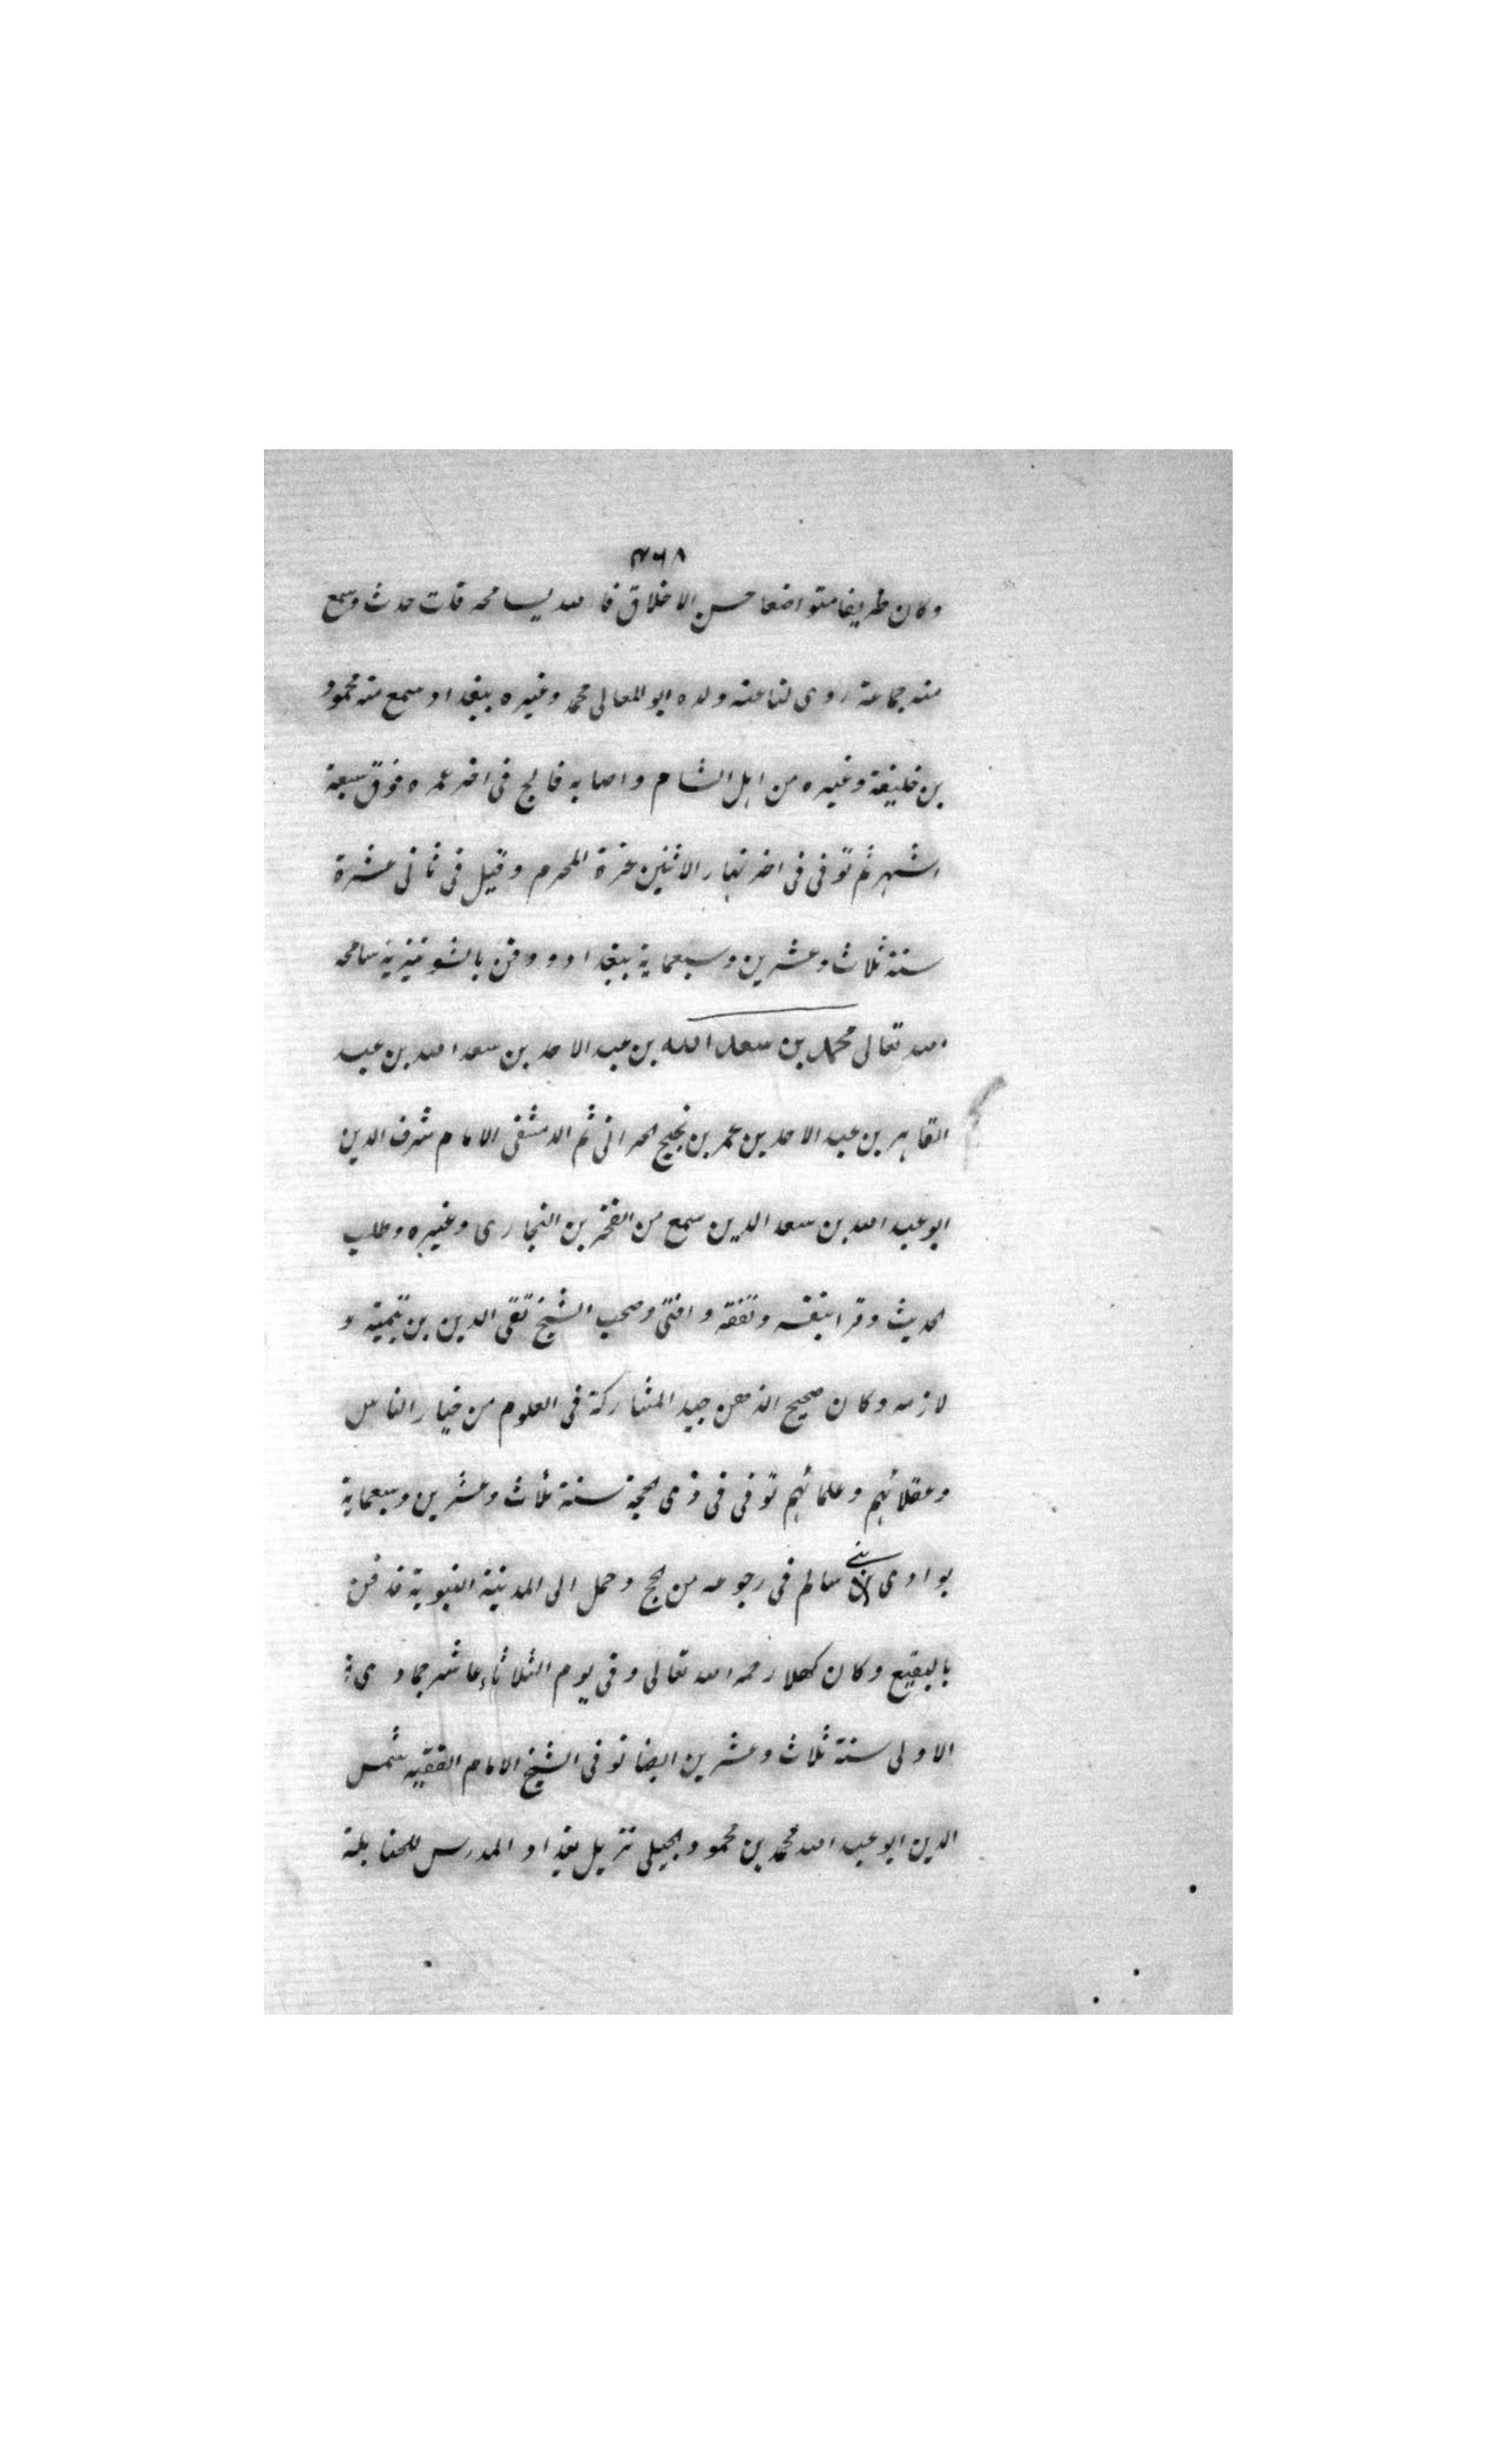 ٣٦٨
وكان ظريفا متواضعا حسن الاخلاق فالله يسامحه قلت حدث وسمع
منه جماعة روى لنا عنه ولده ابو المعالى محمد وغيره ببغداد وسمع منه محمود
بن خليفة وغيره من اهل الشام واصابه فالج فى اخر عمره فوق سبعة
اشهر ثم توفى فى اخر نهار الاثنين غرة المحرم وقيل فى ثانى عشرة
سنة ثلاث وعشرين وسبعماية ببغداد ودفن بالشونيزية سامحه
الله تعالى محمد بن سعد الله بن عبد الاحد بن سعد الله بن عبد
القاهر بن عبد الاحد بن عمر بن نجيح الحرانى ثم الدمشقى الامام شرف الدين
ابو عبد الله بن سعد الدين سمع من الفخر بن البخارى وغيره وطلب
الحديث وقرا بنفسه وتفقه وافتى وصحب الشيخ تقى الدين بن تيمية و
لازمه وكان صحيح الذهن جيد المشاركة فى العلوم من خيار الناس
وعقلائهم وعلمائهم توفى فى ذى الحجة سنة ثلاث وعشرين وسبعماية
بوادى بنى سالم فى رجوعه من الحج وحمل الى المدينة النبوية فدفن
بالبقيع وكان كهلا رحمه الله تعالى وفى يوم الثلاثاء عاشر جمادى
الاولى سنة ثلاث وعشرين ايضا توفى الشيخ الامام الفقيه شمس
الدين ابو عبد الله محمد بن محمود الجيلى نزيل بغداد المدرس للحنابلة